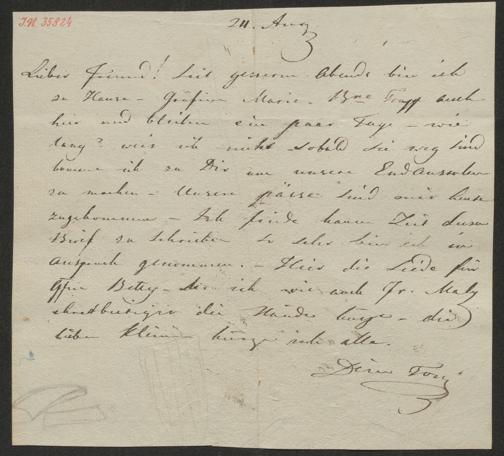 I.N. 35824
24. Aug
Lieber Freund! Seit gestern Abends bin ich
zu Hause – Gräfinn Marie – auch
hier und bleiben ein paar Tage – wie
lang? weis ich nicht sobald sie weg sind
komme ich zu Dir um unsere
zu machen – Unsere pässe sind mir heute
zugekommen – Ich finde kaum Zeit diesen
Brief zu schreiben so sehr bin ich in
Anspruch genommen. – Hier die Lieder für
Betty – ich wie auch Fr.
die Hände küsse – die
lieben kleinen küsse ich alle.
Dein